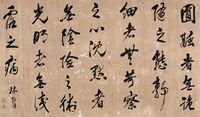 圓融者無詭
隨之態
細者無苛察
之心沈默者
無陰險之術
光明者無淺
露之病 林